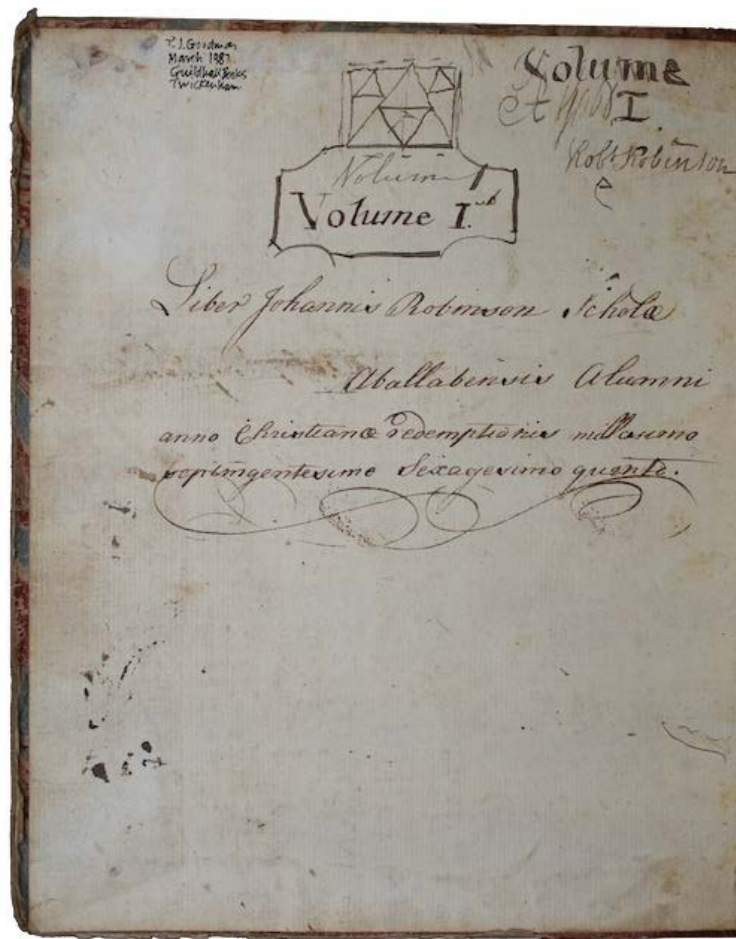 T. J. Goodman
March 1987.
Guildhall Books
Twickenham
Volume
I
Robt Robinson
e
Volume I
Volume I.
Liber Johannis Robinson Scholæ
Aballabensis Alumni
anno Christianæ redemptionis millesimo
septingentesimo Sexagesimo quinto.